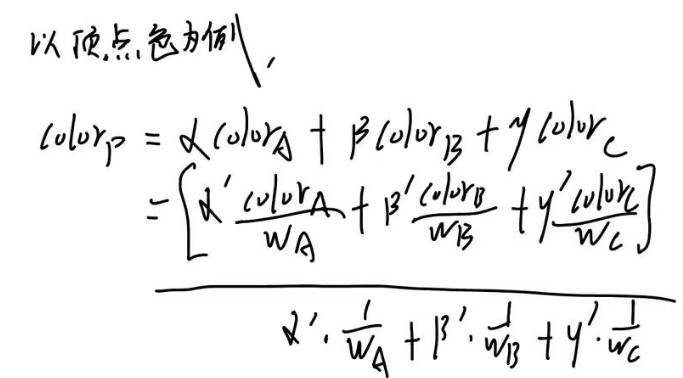 以顶点色为例,
color_P = α color_A + β color_B + γ color_C
= [α' color_A / W_A + β' color_B / W_B + γ' color_C / W_C]
α' · 1/W_A + β' · 1/W_B + γ' · 1/W_C